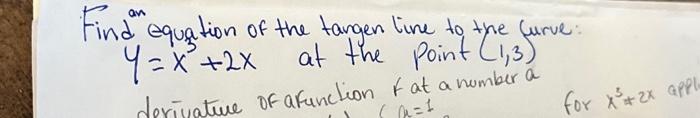 Find an equation of the tangen line to the curve:
y = x³ + 2x at the point (1,3)
derivative of a function f at a number a
a=1
for x³ + 2x